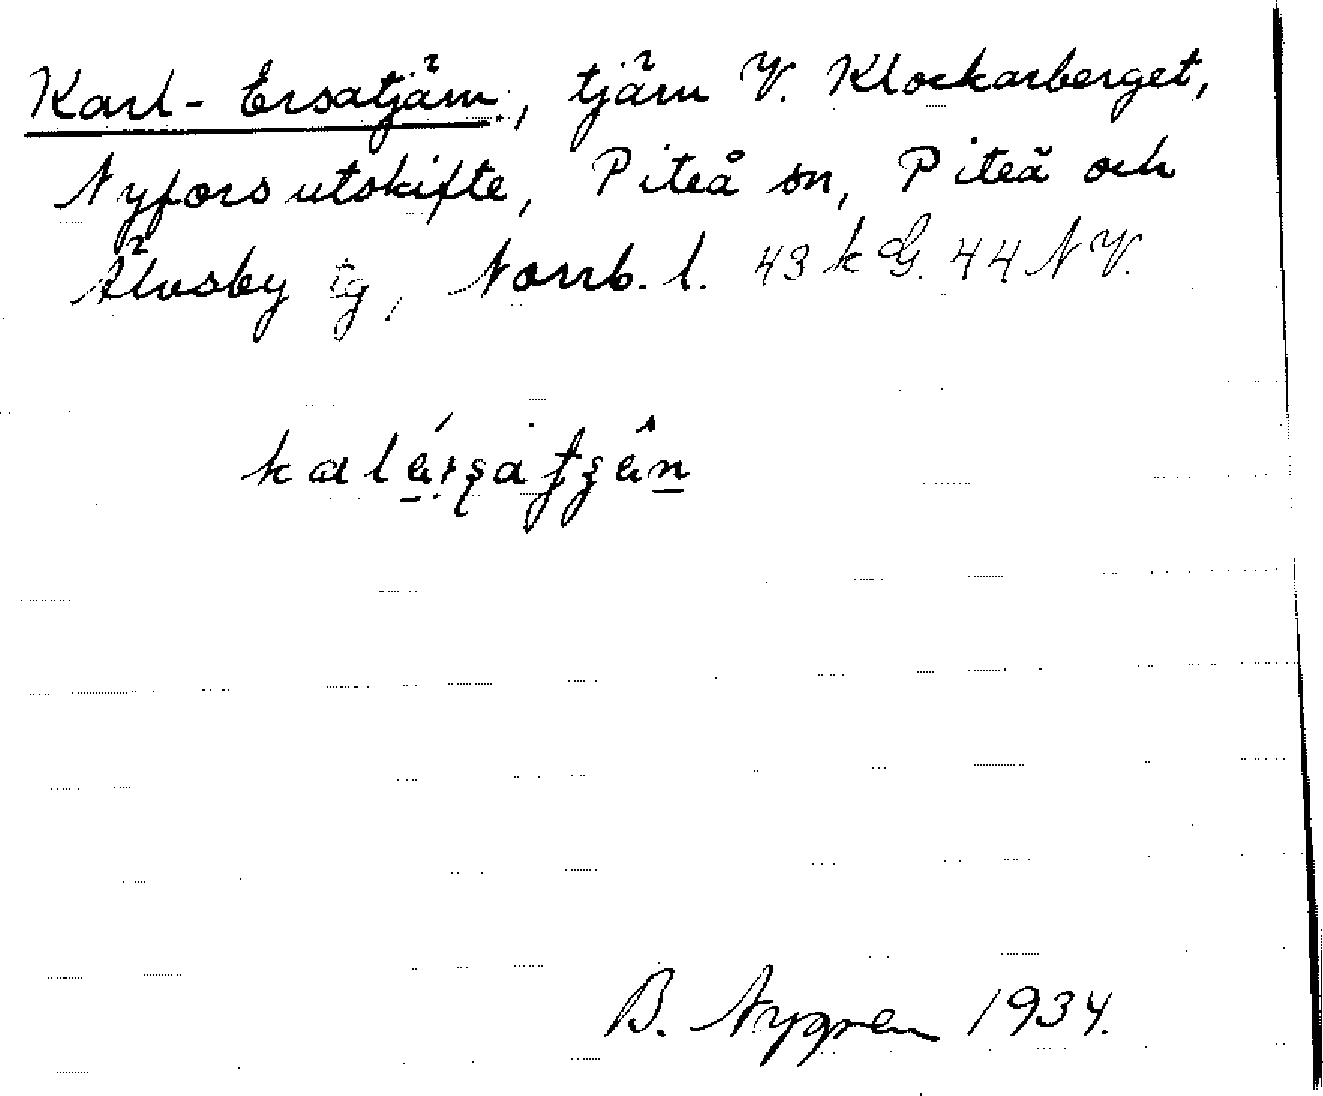 Karl-Ersatjärn, tjärn V. Klockarberget,
Nyfors utskifte, Piteå sn, Piteå och
Älvsby tg, Norrb. l. 43 k G. 44 NV.
B. Nygren 1934.